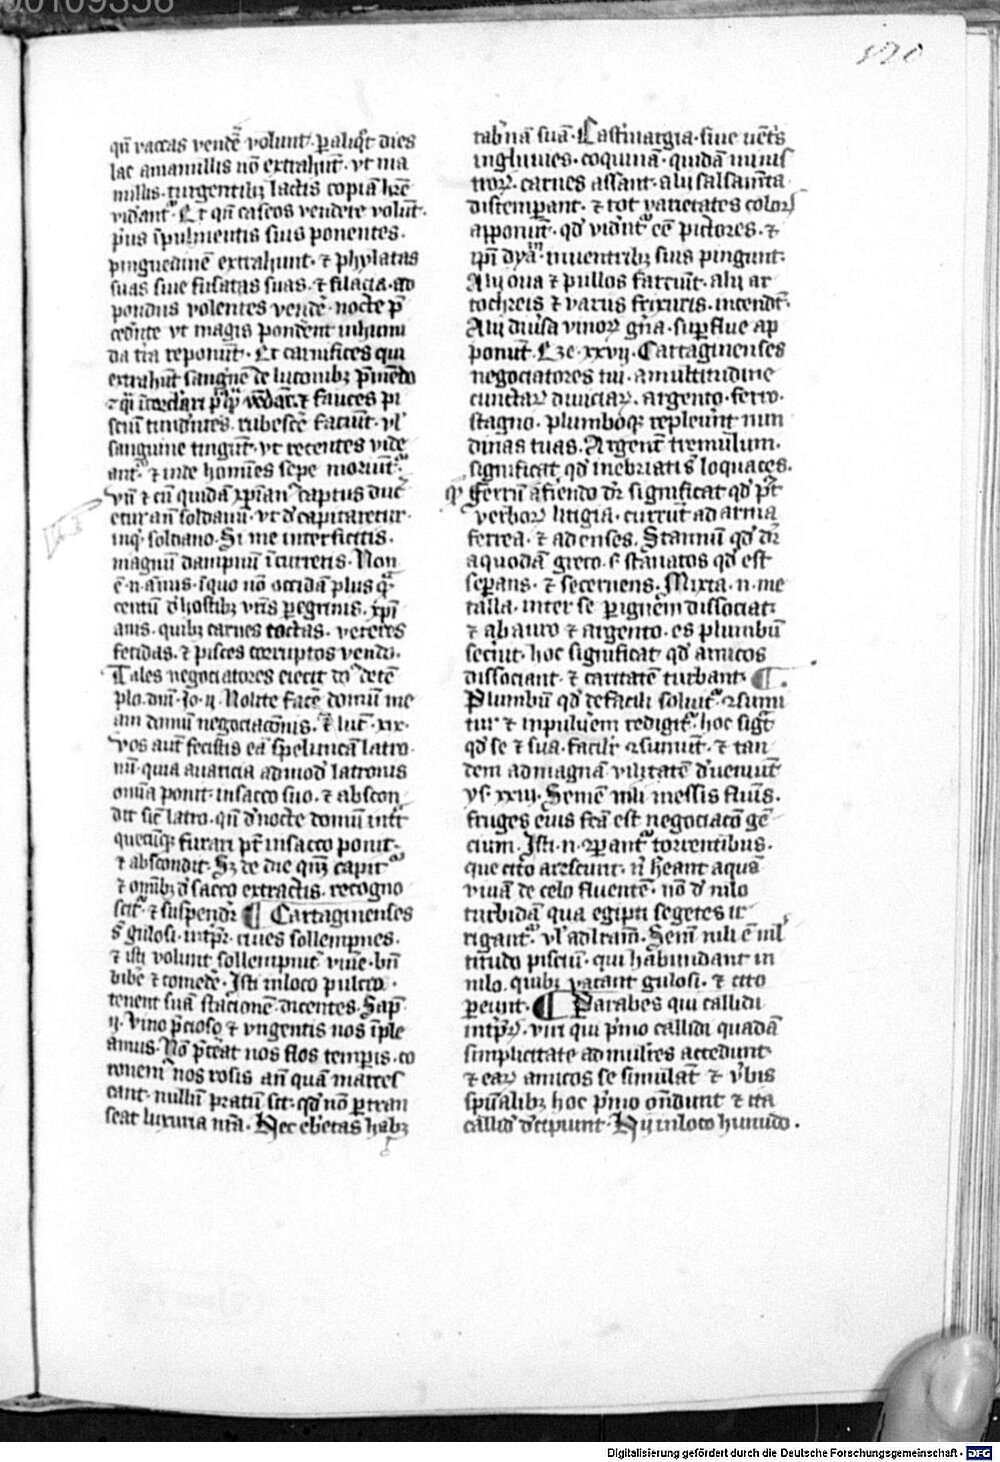 00109336
120
qn̄ vaccas vende͛ volunt. ꝑ aliqͦt dies
lac a mamillis nō extrahūt. vt ma
millis turgentibꝫ lactis copiā hr̄e
videant᷑. Et qn̄ caseos vendere volūt.
pͥus ī pulmentis suis ponentes.
pinguedinē extrahunt. ⁊ phylatas
suas siue fusatas suas. ⁊ filacia. ad
pondus volentes vende͛. nocte
vt magis pondēt in humi
da t͛ra reponūt. Et carnifices qui
extrahūt sangͥnē de
⁊ fauces pi
sciū rubescē faciūt. vl᷑
sanguine tingūt. vt recentes vide
ant᷑. ⁊ inde homīes sepe moriūt᷑.
Vn̄ ⁊ cū quidā xp̄ian᷒ captus
ad soldanū. vt decapitaretur.
inqͥt soldano. Si me interficitis.
magnū dampnū īcurretis. Non
ē. n. ann᷒. ī quo nō occidā plus qͣ
centū de hostibꝫ vr̄is peregrinis. xp̄i
anis. quibꝫ carnes coctas. veteres
fetidas. ⁊ pisces corruptos vendo.
Tales negociatores eiecit dn̄s de tē
plo. Io. ij. Nolite face͛ domū me
am domū negociacōnis. ⁊ luc̄. xix.
Vos aut̄ fecistis eā speluncā latro
nū. quia auaricia ad modū latronis
omīa ponit in sacco suo. ⁊ abscon
dit sic̄ latro. qn̄ de nocte domū intͣt
quecūqꝫ furari pt̄ in sacco ponit.
⁊ abscondit. Sꝫ de die qn̄ capit᷑
⁊ omībꝫ de sacco extractis. recogno
scit᷑. ⁊ suspendit᷑ ¶ Cartaginenses
s̄ gulosi. int̄p̄t᷑. ciues sollempnes.
⁊ isti volunt sollempnit͛ viue͛. bn̄
bibe͛ ⁊ comede͛. Isti in loco pulcro
tenent suā stacionē. dicentes. Sap̄.
ij. Vino p̄cioso ⁊ vngentis nos īple
amus. Nō p̄t͛eat nos flos temꝑis. co
ronem᷒ nos rosis an̄ quā marces
cant. nullū pratū sit. qd̄ nō ꝑtran
seat luxuria nr̄a. Hec ebͥetas habꝫ
tab͛nā suā. Castͥmargia. siue vētͥs
ingluuies. coquinā. quidā
carnes assant. alij salsamēta
distemꝑant. ⁊ tot varietates coloꝝ
apponūt. qd̄ vident᷑ eē pictores. ⁊
ip̄i in uentribꝫ suis pingunt.
Alij oua ⁊ pullos farciūt. alij ar
tochreis ⁊ variis frixuris. intendūt.
Alij diu͛sa vinoꝝ gn̄a. suꝑflue ap
ponūt. Eze. xxvij. Cartaginenses
negociatores tui. a multitudine
cunctaꝝ diuiciaꝝ. argento. ferro.
stagno. plumboqꝫ repleuer̄t nun
dinas tuas. Argent̄ tremulum.
significat qd̄ inebriatis loquaces.
Ferrū a feriendo dr̄ significat qd̄ p᷒t
verboꝝ litigia. currūt ad arma
ferrea. ⁊ ad enses. Stannū qd̄ dr̄
a quodā greco. s̄ stanatos qd̄ est
seꝑans. ⁊ secernens. Mixta. n. me
talla. inter se ꝑ ignem dissociat.
⁊ ab auro ⁊ argento. es plumbū
secͥnit. hoc significat qd̄ amicos
dissociant. ⁊ caritatē turbant. ¶.
Plumbū qd̄ de facili soluit᷑. ꝯsumi
tur ⁊ in puluerem redigit᷑. hoc sigt̄
qd̄ se ⁊ sua. facilit͛ ꝯsumūt. ⁊ tan
dem ad magnā vilitatē deueniūt
Ys. xxiij. Semē nili messis fluuiͥs.
fruges eius fc̄a est negociacō gē
cium. Isti. n. ꝯꝑant᷑ torrentibus.
que cito arescunt. nͥ habeant aquā
viuā de celo fluentē. nō de nilo
turbidā qua egipti segetes ir
rigant᷑. vl᷑ ad lr̄am. Semē nili ē ml᷑
titudo pisciū. qui habundant in
nilo. quibꝫ vacant gulosi. ⁊ cito
ꝑeunt. ¶ Parabes qui callidi
int̄p̄t᷑. viri qui pͥmo callidi quadā
simplicitate ad mulīes accedunt.
⁊ eaꝝ amicos se simulāt ⁊ v͛bis
sp̄ualibꝫ hoc pͥmo ondunt ⁊ ita
callide decipiunt. Hij in loco humido.
Digitalisierung gefördert durch die Deutsche Forschungsgemeinschaft - DFG